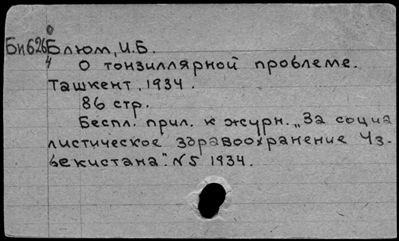 Бп626 Блюм, И.Б.
О тонзиллярной проблеме.
Ташкент, 1934.
86 стр.
Беспл. прил. к журн. „За социа
листическое здравоохранение Уз-
бекистана". N5 1934.